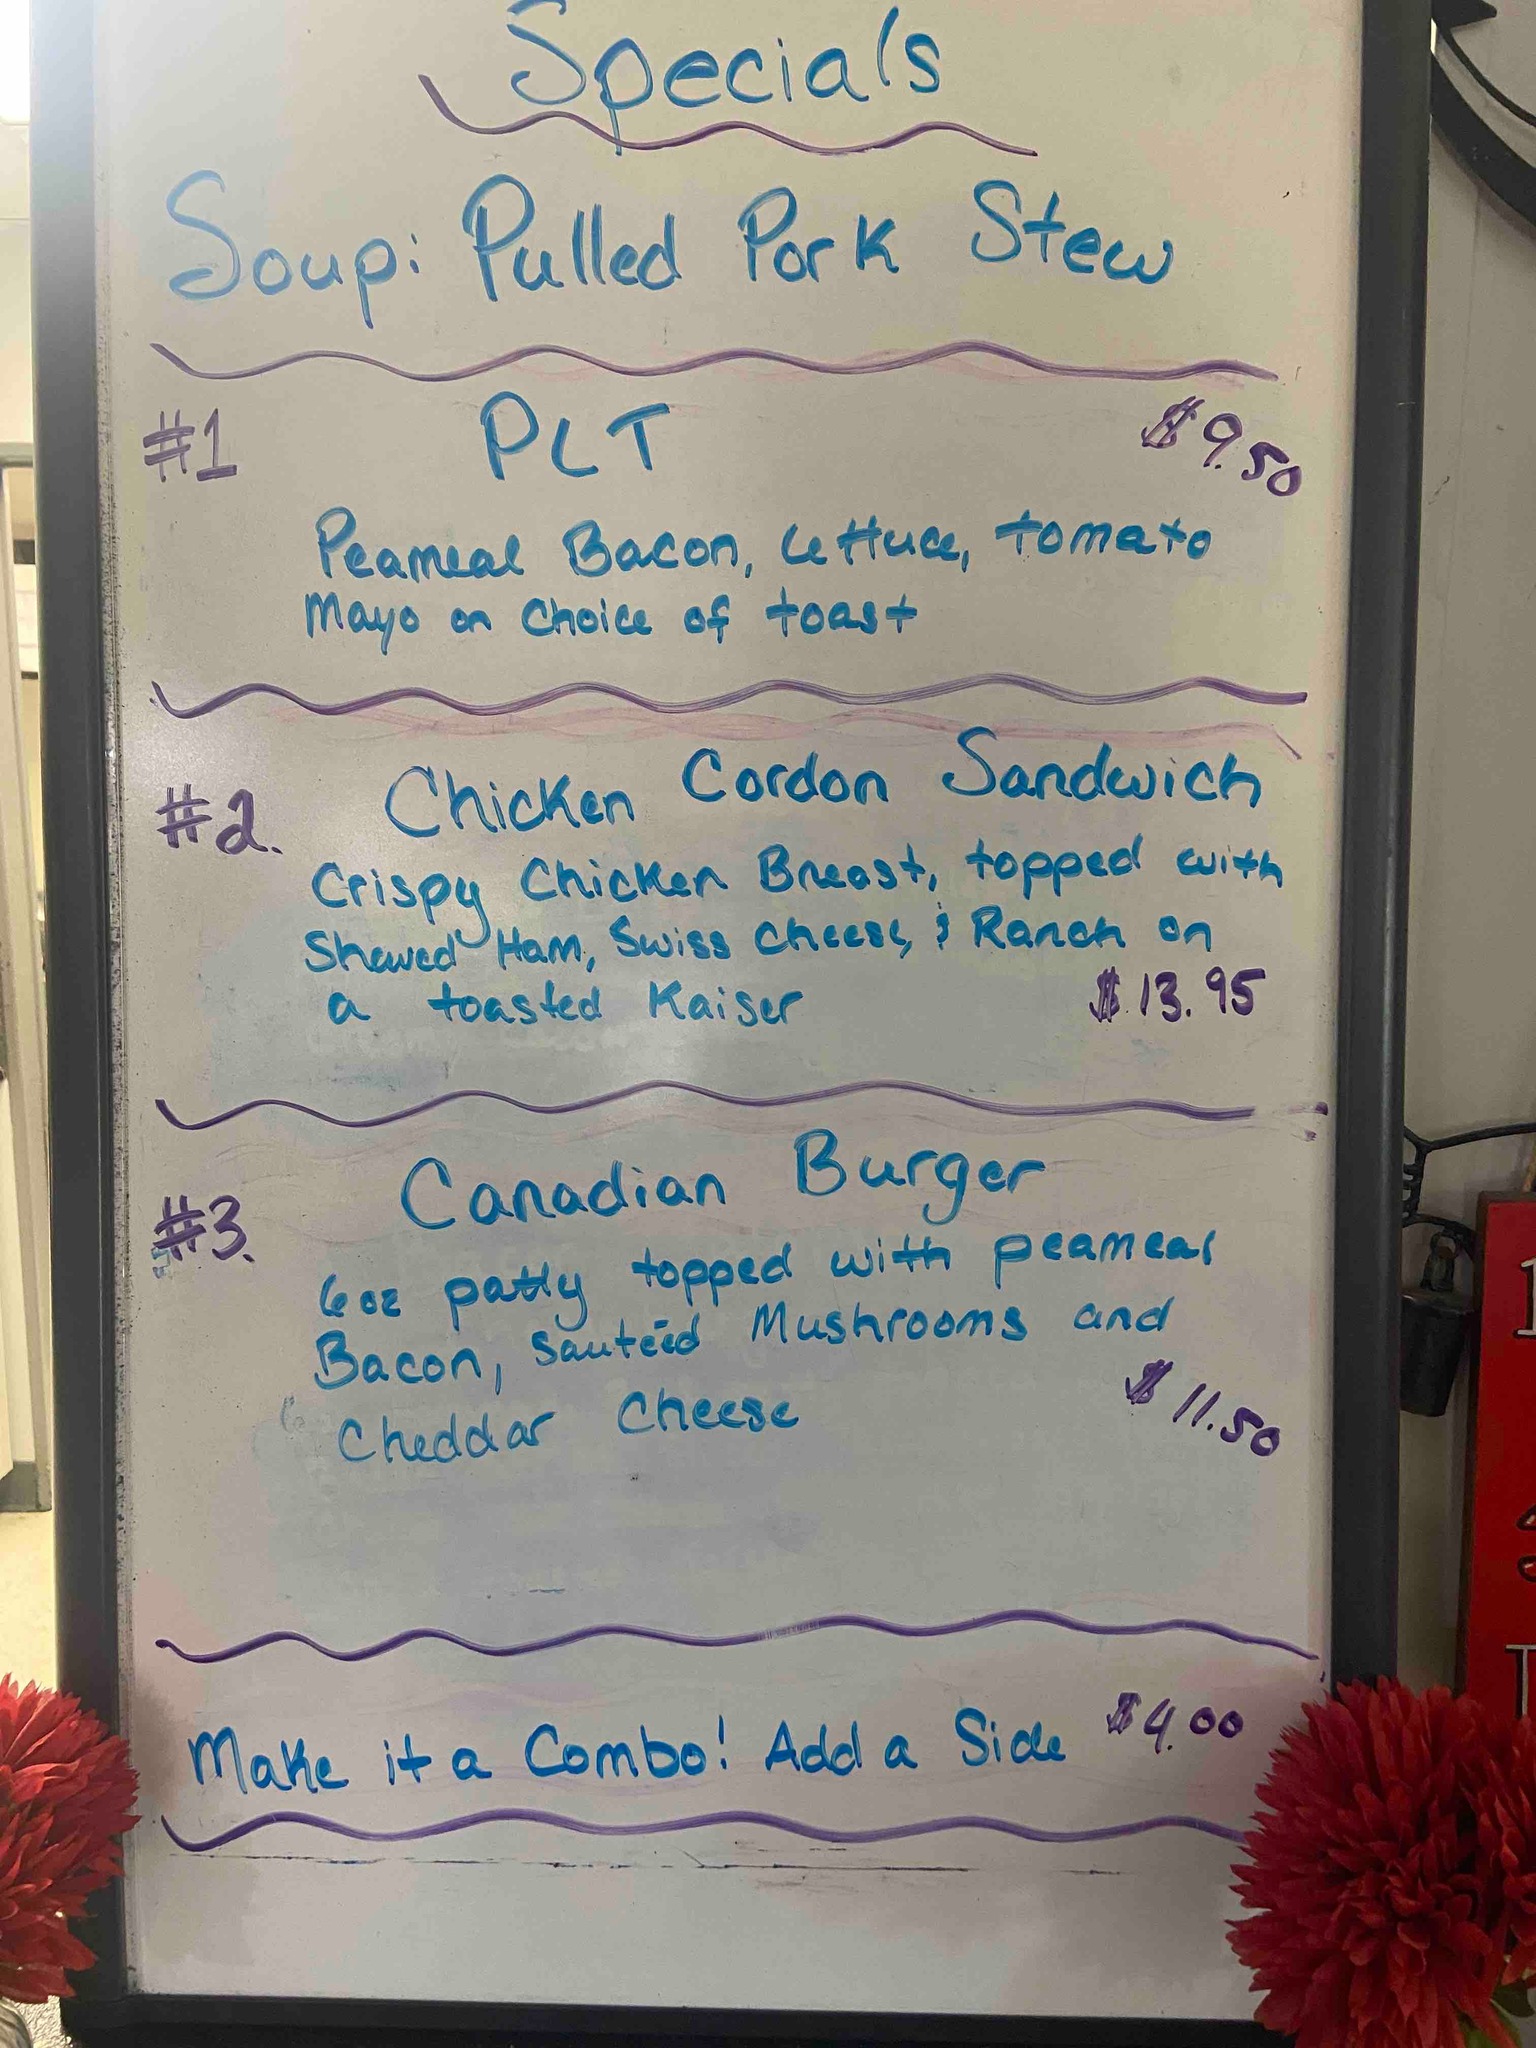 Specials
Soup: Pulled Pork Stew
#1 PLT $9.50
Peameal Bacon, Lettuce, tomato
Mayo on Choice of toast
#2. Chicken Cordon Sandwich
Crispy Chicken Breast, topped with
Shaved Ham, Swiss Cheese, & Ranch on
a toasted Kaiser $13.95
#3. Canadian Burger
6oz patty topped with peameal
Bacon, Sauteéd Mushrooms and
Cheddar Cheese $11.50
Make it a Combo! Add a Side $4.00